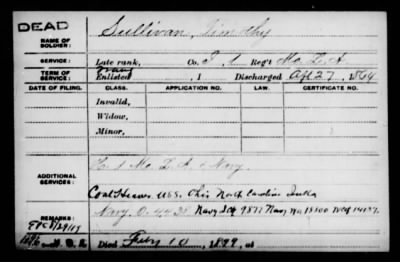 DEAD
NAME OF SOLDIER: Sullivan, Timothy
SERVICE: Late rank, Co. I 1 Reg't Mo. L. A.
TERM OF SERVICE: Enlisted , 1 Discharged Apl 27, 1864
DATE OF FILING. CLASS. APPLICATION NO. LAW. CERTIFICATE NO.
Invalid,
Widow,
Minor,
ADDITIONAL SERVICES: Co. I 1 Mo L. A. & Navy.
Coal Heaver U.S.S. Ohio North Carolina
REMARKS: Navy O. 4431 Navy
Died July 10, 1899, at